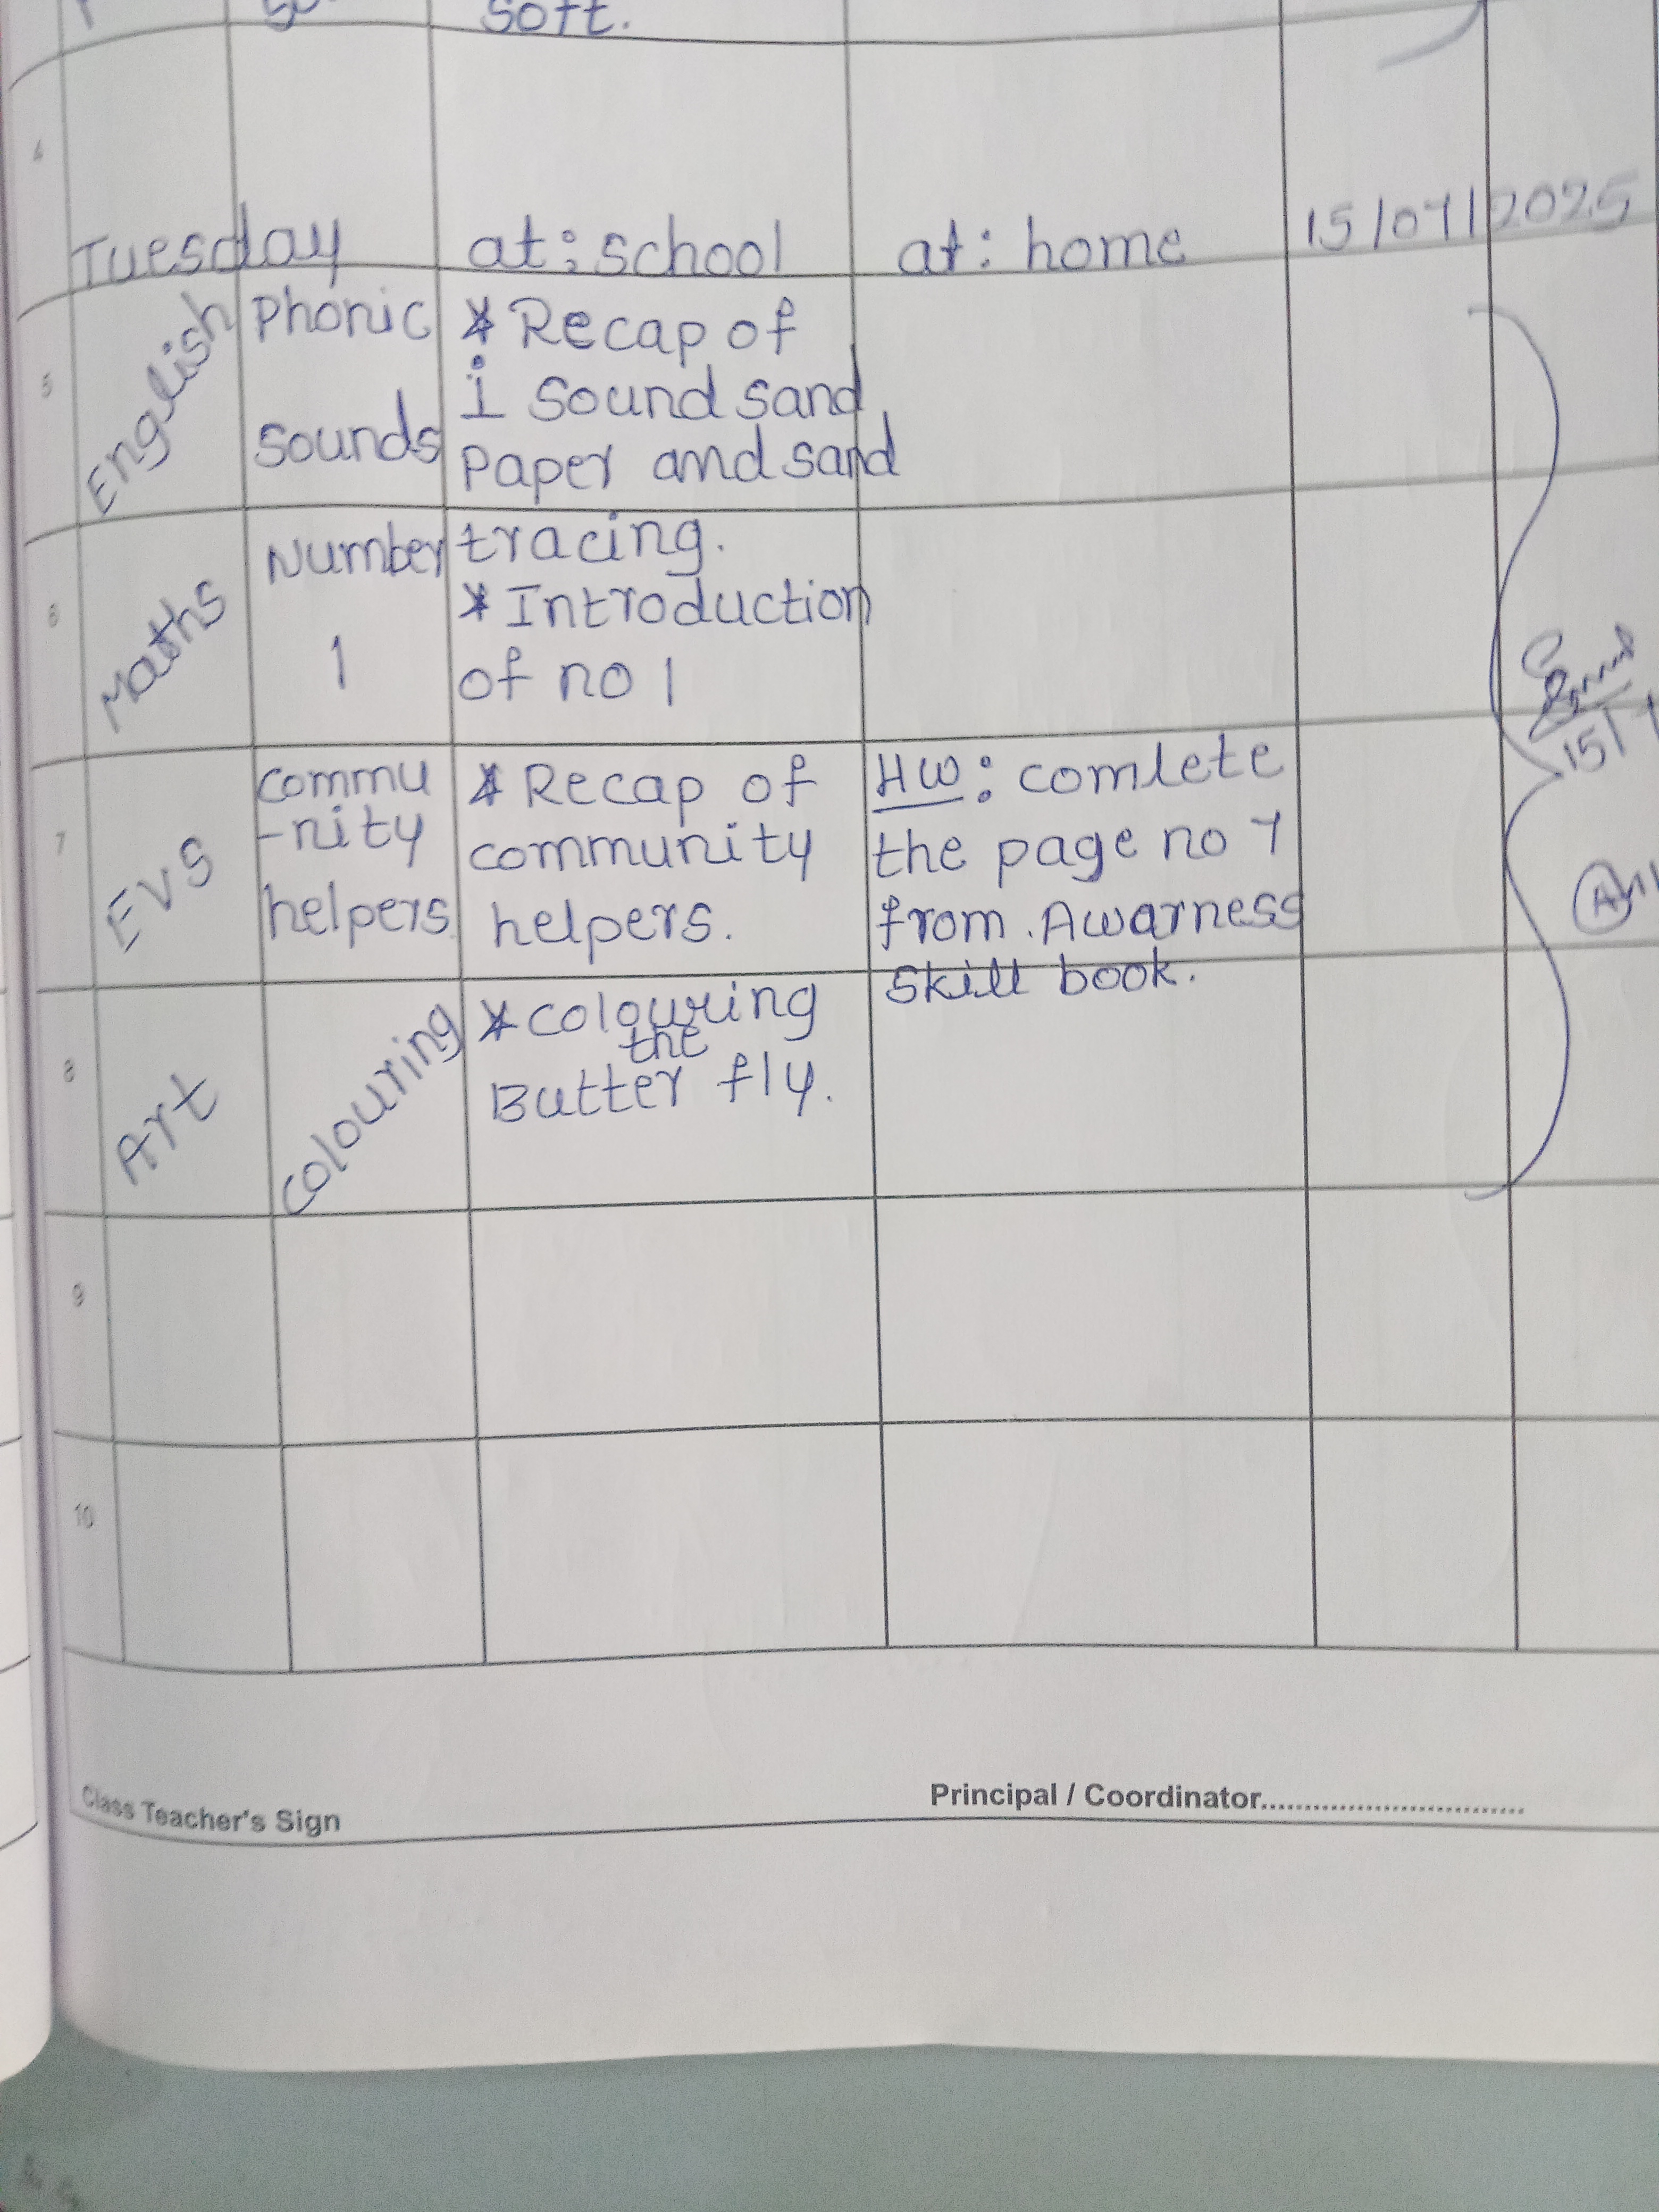 soft.
4
Tuesday at: school at: home 15/07/2025
5 English Phonic Sounds
* Recap of
i sound sand
paper and sand
tracing.
6 Maths Number 1
* Introduction
of no 1
7 EVS
commu
-nity
helpers
* Recap of
community
helpers.
HW: comlete
the page no 7
from. Awarness
skill book.
8 Art colouring
* colouring
the
Butter fly.
15/7
9
10
Class Teacher's Sign
Principal / Coordinator..............................